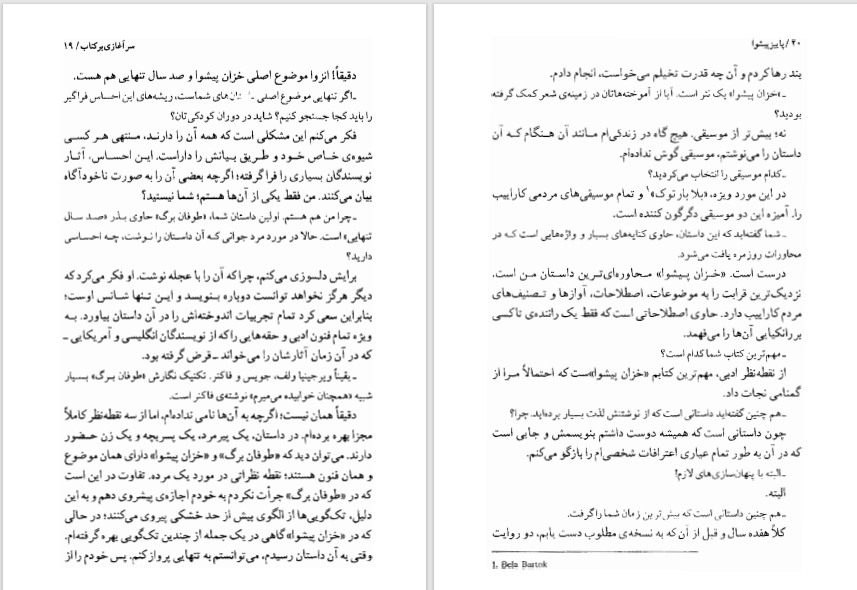 سرآغازی بر کتاب / ۱۹
دقیقاً! انزوا موضوع اصلی خزان پیشوا و صد سال تنهایی هم هست.
ـ اگر تنهایی موضوع اصلی شماست، ریشه‌های این احساس فراگیر
را باید کجا جستجو کنیم؟ شاید در دوران کودکی‌تان؟
فکر می‌کنم این مشکلی است که همه آن را دارند، منتهی هر کسی
شیوه‌ی خاص خود و طریق بیانش را داراست. این احساس، آثار
نویسندگان بسیاری را فرا گرفته؛ اگرچه بعضی آن را به صورت ناخودآگاه
بیان می‌کنند. من فقط یکی از آن‌ها هستم؛ شما نیستید؟
ـ چرا من هم هستم. اولین داستان شما، «طوفان برگ» حاوی بذر «صد سال
تنهایی» است. حالا در مورد مرد جوانی که آن داستان را نوشت، چه احساسی
دارید؟
برایش دلسوزی می‌کنم، چرا که آن را با عجله نوشت. او فکر می‌کرد که
دیگر هرگز نخواهد توانست دوباره بنویسد و این تنها شانس اوست؛
بنابراین سعی کرد تمام تجربیات اندوخته‌اش را در آن داستان بیاورد. به
ویژه تمام فنون ادبی و حقه‌هایی را که از نویسندگان انگلیسی و آمریکایی ـ
که در آن زمان آثارشان را می‌خواند ـ قرض گرفته بود.
ـ یقیناً ویرجینیا ولف، جویس و فاکنر. تکنیک نگارش «طوفان برگ» بسیار
شبیه «همچنان خوابیده می‌میرم» نوشته‌ی فاکنر است.
دقیقاً همان نیست؛ اگرچه به آن‌ها نامی نداده‌ام، اما از سه نقطه‌نظر کاملاً
مجزا بهره برده‌ام. در داستان، یک پیرمرد، یک پسربچه و یک زن حضور
دارند. می‌توان دید که «طوفان برگ» و «خزان پیشوا» دارای همان موضوع
و همان فنون هستند؛ نقطه نظراتی در مورد یک مرده. تفاوت در این است
که در «طوفان برگ» جرأت نکردم به خودم اجازه‌ی پیشروی دهم و به این
دلیل، تک‌گویی‌ها از الگوی بیش از حد خشکی پیروی می‌کنند؛ در حالی
که در «خزان پیشوا» گاهی در یک جمله از چندین تک‌گویی بهره گرفته‌ام.
وقتی به آن داستان رسیدم، می‌توانستم به تنهایی پرواز کنم. پس خودم را از
۲۰ / پاییز پیشوا
بند رها کردم و آن چه قدرت تخیلم می‌خواست، انجام دادم.
ـ «خزان پیشوا» یک نثر است. آیا از آموخته‌هاتان در زمینه‌ی شعر کمک گرفته
بودید؟
نه؛ بیش‌تر از موسیقی. هیچ گاه در زندگی‌ام مانند آن هنگام که آن
داستان را می‌نوشتم، موسیقی گوش نداده‌ام.
ـ کدام موسیقی را انتخاب می‌کردید؟
در این مورد ویژه، «بلا بارتوک»۱ و تمام موسیقی‌های مردمی کاراییب
را. آمیزه این دو موسیقی دگرگون کننده است.
ـ شما گفته‌اید که این داستان، حاوی کنایه‌های بسیار و واژه‌هایی است که در
محاورات روزمره یافت می‌شود.
درست است. «خزان پیشوا» محاوره‌ای‌ترین داستان من است.
نزدیک‌ترین قرابت را به موضوعات، اصطلاحات، آوازها و تصنیف‌های
مردم کاراییب دارد. حاوی اصطلاحاتی است که فقط یک راننده‌ی تاکسی
بررانکیایی آن‌ها را می‌فهمد.
ـ مهم‌ترین کتاب شما کدام است؟
از نقطه‌نظر ادبی، مهم‌ترین کتابم «خزان پیشوا»ست که احتمالاً مرا از
گمنامی نجات داد.
ـ هم چنین گفته‌اید داستانی است که از نوشتنش لذت بسیار برده‌اید. چرا؟
چون داستانی است که همیشه دوست داشتم بنویسمش و جایی است
که در آن به طور تمام عیاری اعترافات شخصی‌ام را بازگو می‌کنم.
ـ البته با پنهان‌سازی‌های لازم!
البته.
ـ هم چنین داستانی است که بیش‌ترین زمان شما را گرفت.
کلاً هفده سال و قبل از آن که به نسخه‌ی مطلوب دست یابم، دو روایت
1. Bela Bartok